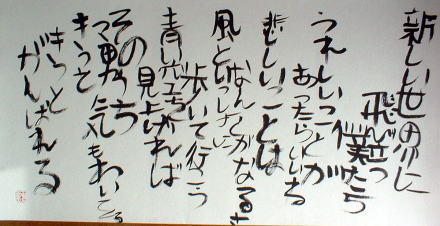 新しい世の中に
飛び立つ
僕たち
うれしいことが
あったらいい
悲しいことは
なんとかなるさ
風といっしょに
歩いて行こう
青い空
見上げれば
そのうち
勇気もわいてくる
きっと
きっと
がんばれる